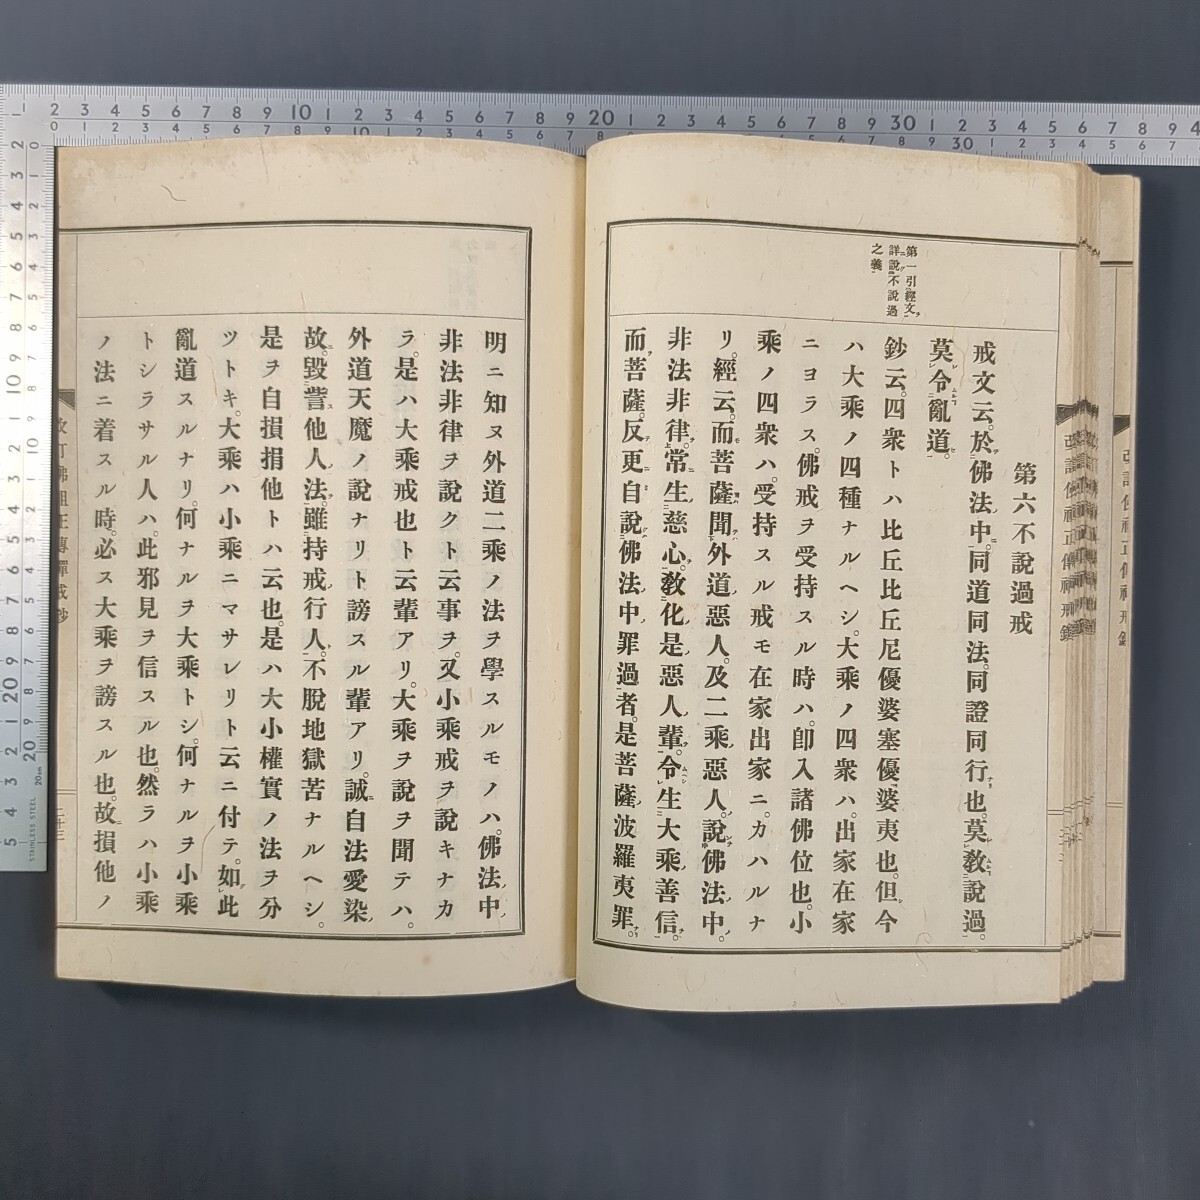 第六不說過戒
戒文云。於佛法中。同道同法。同證同行也。莫敎說過。
莫令亂道。
鈔云。四衆トハ比丘比丘尼優婆塞優婆夷也。但今
ハ大乘ノ四種ナルヘシ。大乘ノ四衆ハ。出家在家
ニヨラス。佛戒ヲ受持スル時ハ。卽入諸佛位也。小
乘ノ四衆ハ。受持スル戒モ在家出家ニ。カハルナ
リ。經云。而菩薩聞外道惡人。及二乘惡人。說佛法中。
非法非律。常生慈心。敎化是惡人輩。令生大乘善信。
而菩薩。反更自說佛法中罪過者。是菩薩波羅夷罪。
第一引經文
詳說不說過
之義
明ニ知ヌ外道二乘ノ法ヲ學スルモノハ。佛法中
非法非律ヲ說クト云事ヲ。又小乘戒ヲ說キナカ
ラ。是ハ大乘戒也ト云輩アリ。大乘ヲ說ヲ聞テハ。
外道天魔ノ說ナリト謗スル輩アリ。誠自法愛染
故。毀訾他人法。雖持戒行人。不脫地獄苦ナルヘシ。
是ヲ自損損他トハ云也。是ハ大小權實ノ法ヲ分
ツトキ。大乘ハ小乘ニマサレリト云ニ付テ。如此
亂道スルナリ。何ナルヲ大乘トシ。何ナルヲ小乘
トシラサル人ハ。此邪見ヲ信スル也。然ラハ小乘
ノ法ニ着スル時。必ス大乘ヲ謗スル也。故損他ノ
STAINLESS STEEL